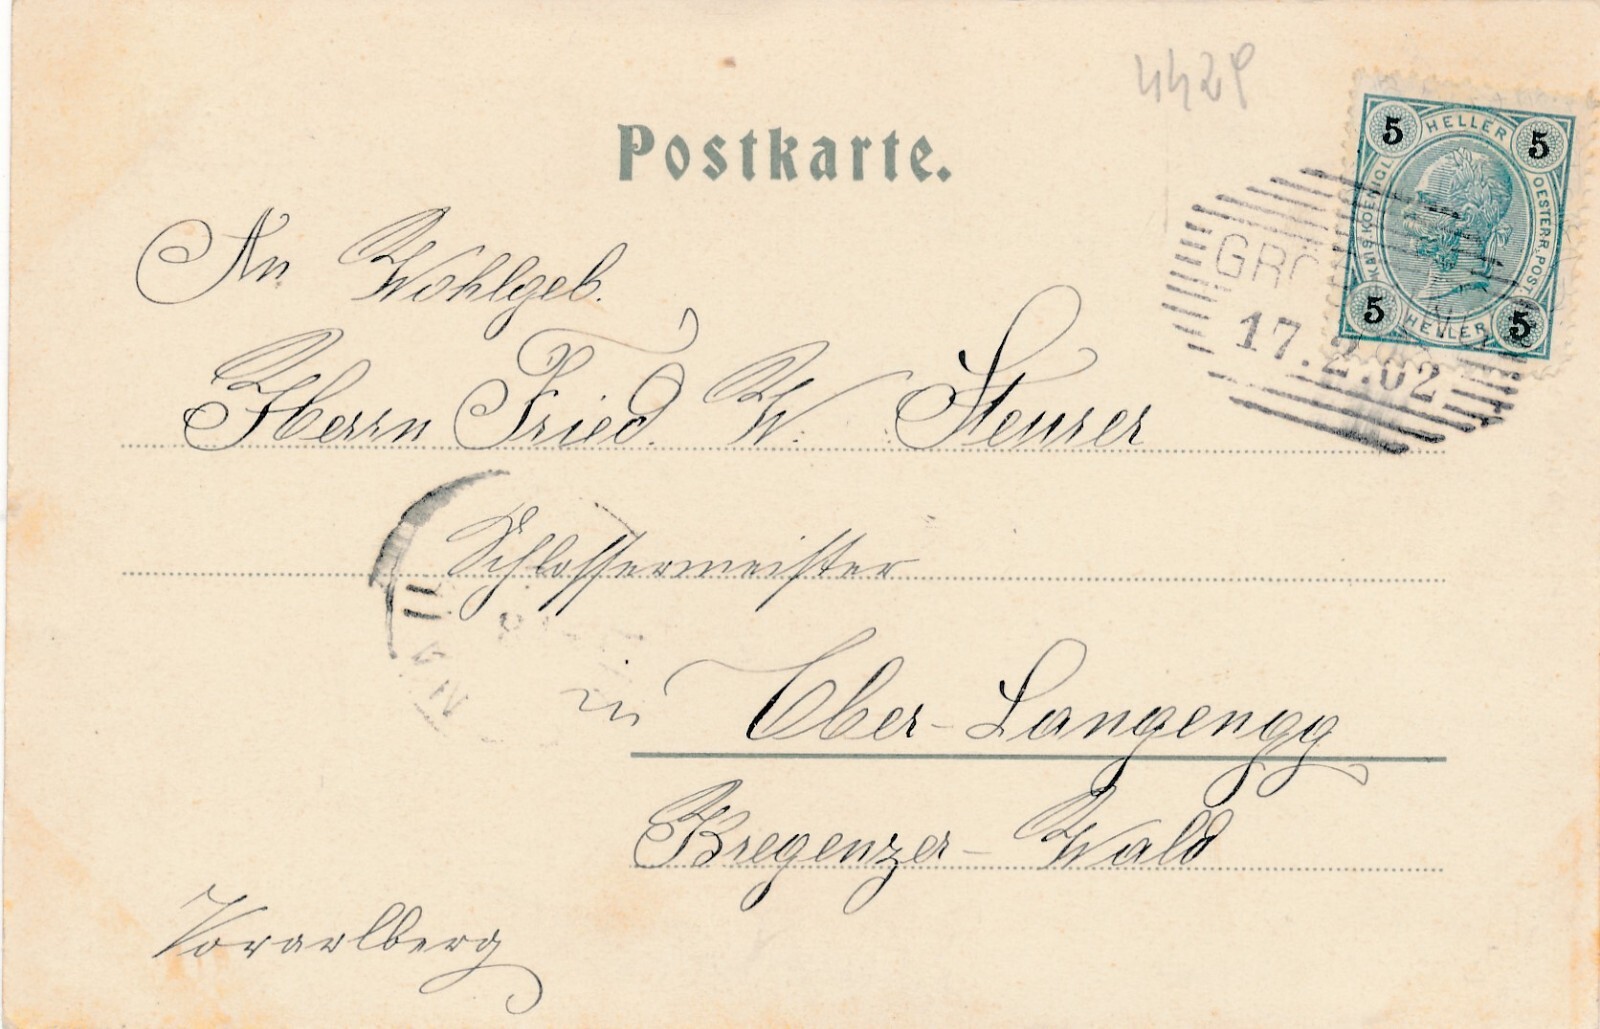 4429
Postkarte.
5 HELLER 5
KAIS. KOENIGL. OESTERR. POST.
5 HELLER 5
17.2.02
An Wohlgeb.
Herrn Fried. W. Steurer
Schlossermeister
in Ober-Langengg
Bregenzer-Wald
Vorarlberg